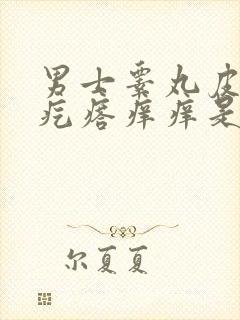 男士睾丸皮
疙瘩痒痒是
尔夏夏